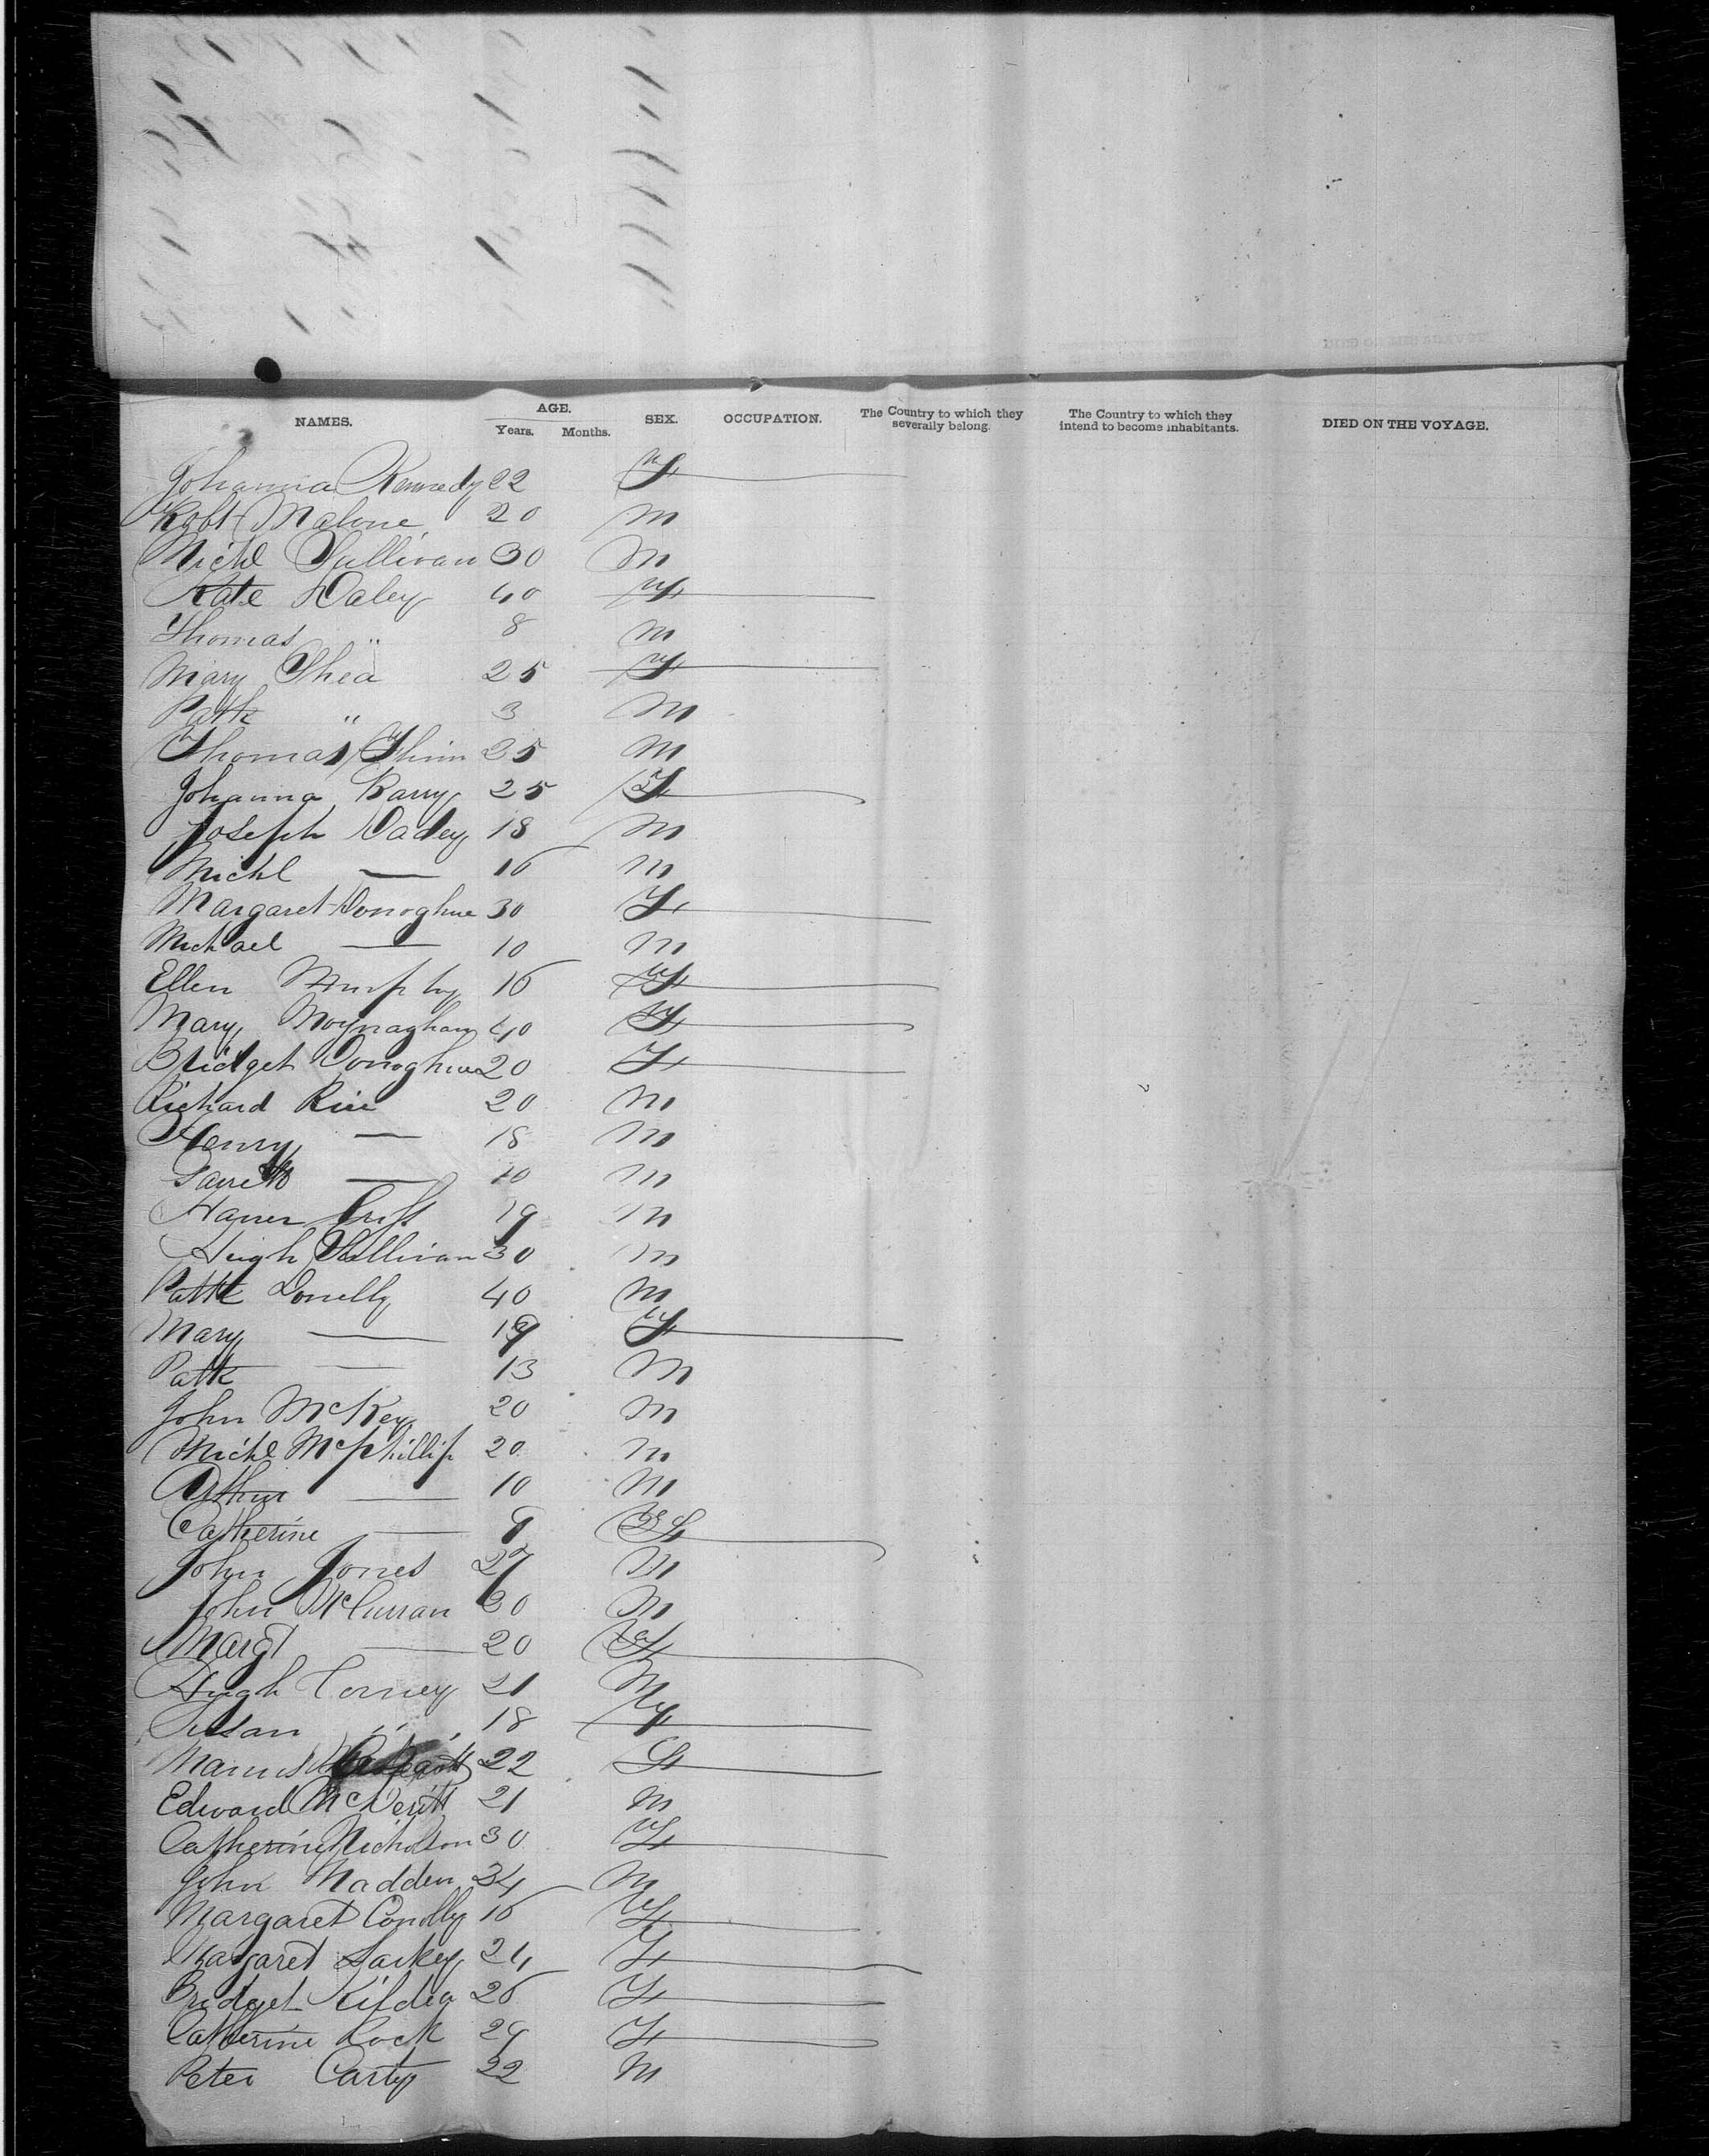 NAMES. AGE. Years. Months. SEX. OCCUPATION. The Country to which they severally belong. The Country to which they intend to become inhabitants. DIED ON THE VOYAGE.
Johanna Kennedy 22 F
Robt Malone 20 M
Michl Sullivan 30 M
Kate Daley 40 F
Thomas " 8 M
Mary Shea 25 F
Patk " 3 M
Thomas 25 M
Johanna Barry 25 F
Joseph Dadey 18 M
Michl — 16 M
Margaret Donoghue 30 F
Michael — 10 M
Ellen Murphy 16 F
Mary Moynaghan 40 F
Bridget Donoghue 20 F
Richard Rice 20 M
Henry — 18 M
Garrett — 10 M
19 M
Hugh Sullivan 30 M
Patk Donelly 40 M
Mary — 19 F
Patk — 13 M
John McKey 20 M
Michl McPhillip 20 M
Arthur — 10 M
Catherine — 9 F
John Jones 27 M
John McCurran 30 M
Margt — 20 F
Hugh Torney 21 M
Susan " 18 F
22 F
Edward McDevitt 21 M
Catherine Nicholson 30 F
John Madden 34 M
Margaret Conolly 16 F
Margaret Larkey 24 F
Bridget Kildea 26 F
Catherine Rock 29 F
Peter Carty 22 M